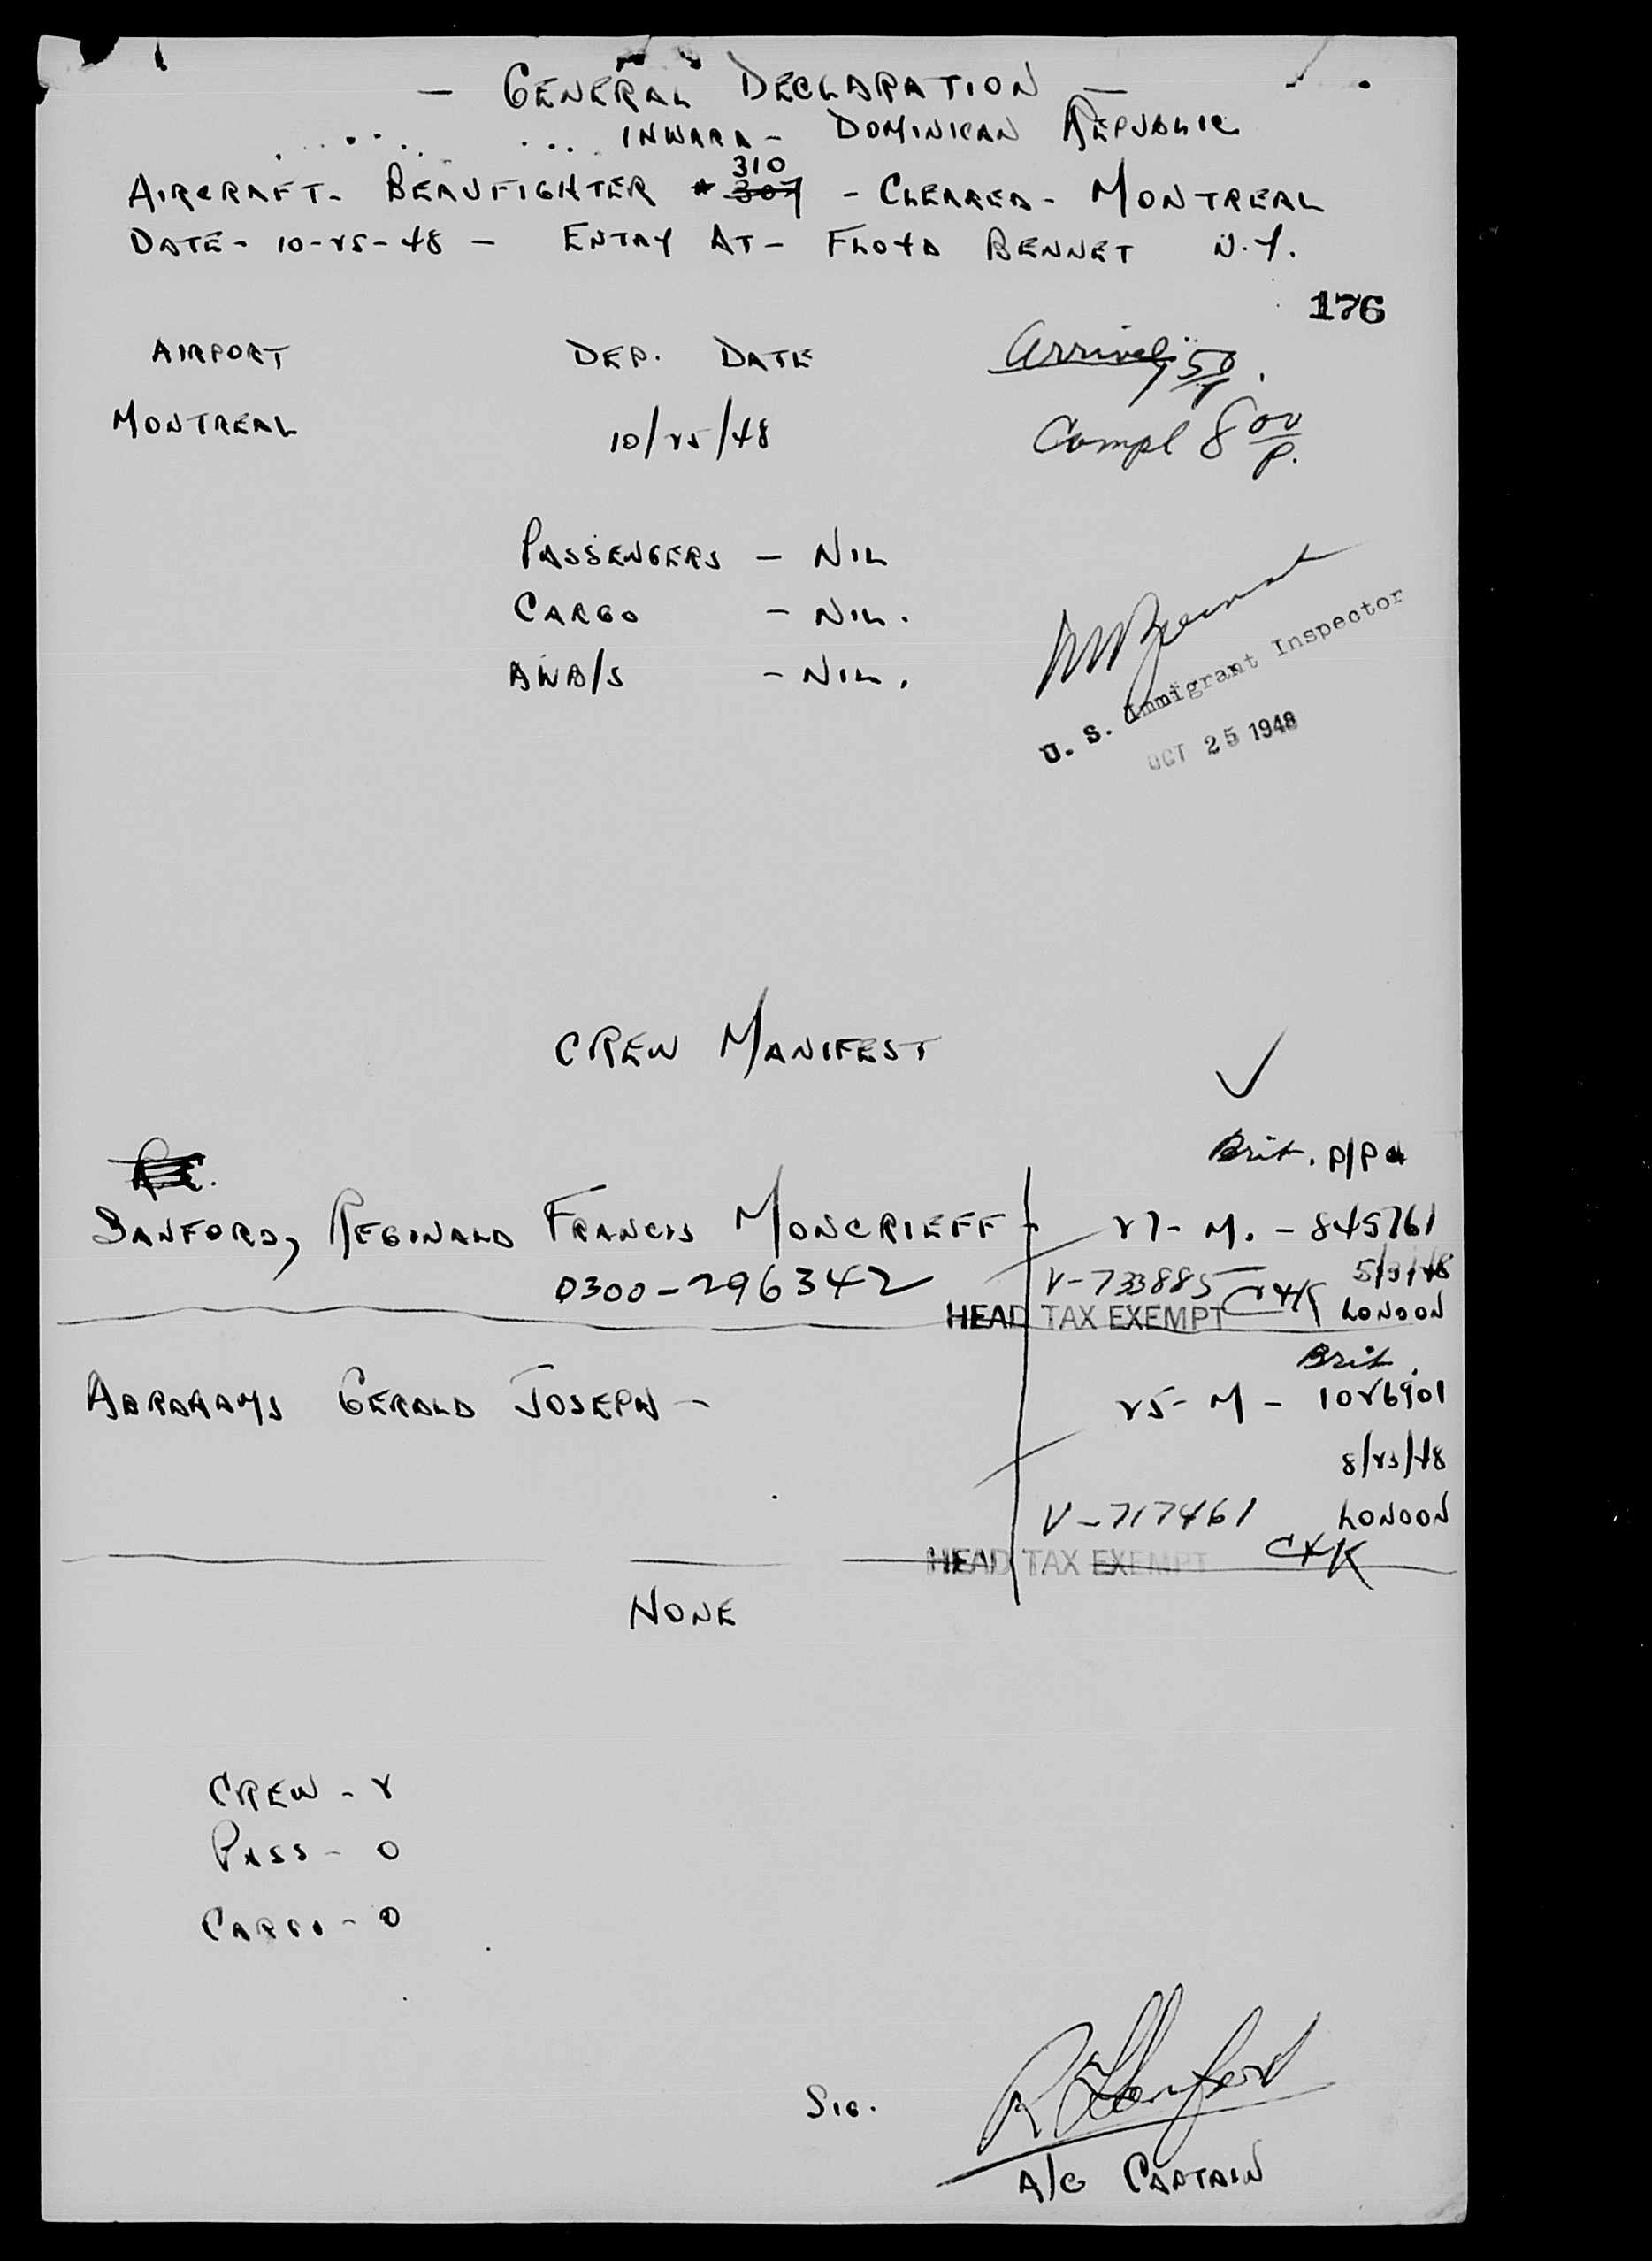 - GENERAL DECLARATION -
INWARD - DOMINICAN REPUBLIC
310
AIRCRAFT - BEAUFIGHTER # 307 - CLEARED - MONTREAL
DATE - 10-25-48 - ENTRY AT - FLOYD BENNET N.Y.
176
AIRPORT DEP. DATE Arrived 50
MONTREAL 10/25/48 Compl 8 00/P.
PASSENGERS - NIL
CARGO - NIL.
AWB/S - NIL.
U. S. Immigrant Inspector
OCT 25 1948
CREW MANIFEST
Brit. P/P
SANFORD, REGINALD FRANCIS MONCRIEFF - 27 - M. - 845761
0300-296342 V-733885
HEAD TAX EXEMPT LONDON
Brit.
ABRAHAMS GERALD JOSEPH - 25 - M - 1026901
8/23/48
V-717461 LONDON
HEAD TAX EXEMPT
NONE
CREW - 2
PASS - 0
CARGO - 0
SIG. R Sanford
A/C CAPTAIN